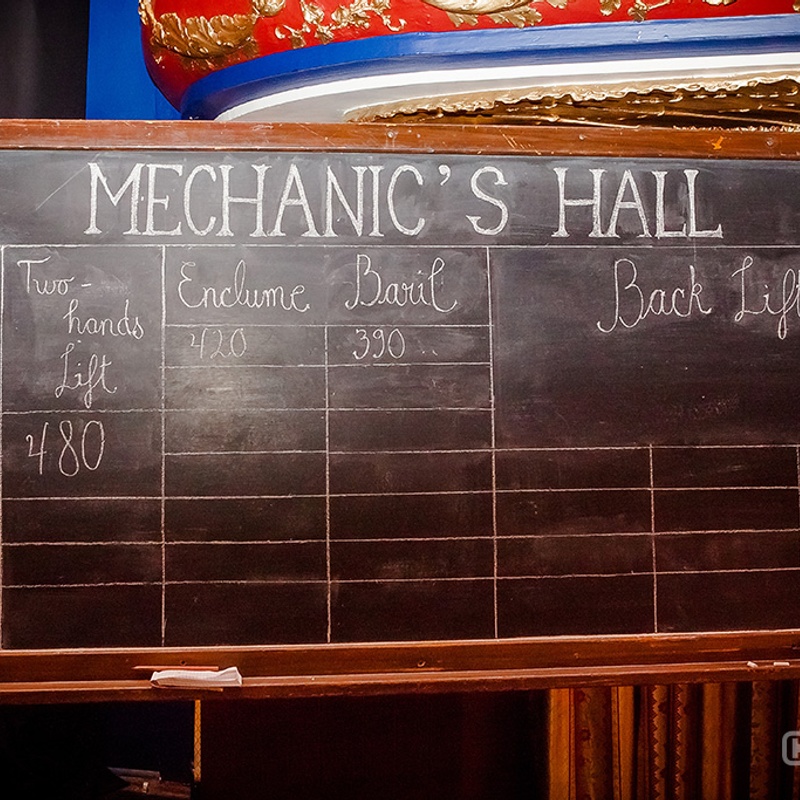 MECHANIC'S HALL
Two-
hands
Lift
480
Enclume Baril
420 390
Back Lift